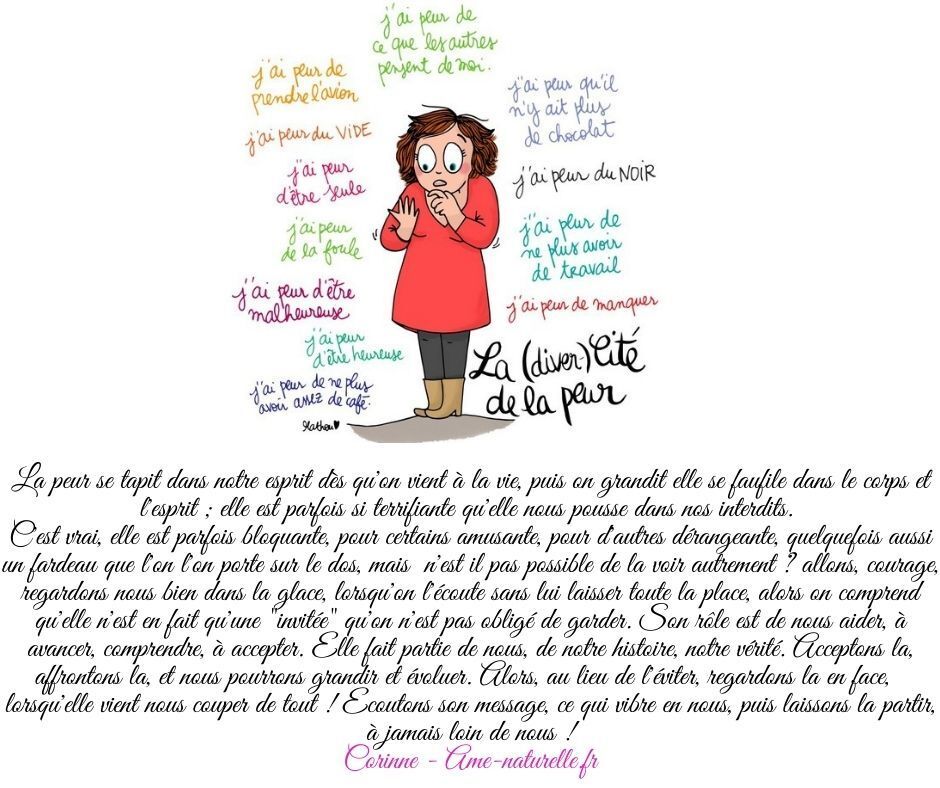 j'ai peur de
ce que les autres
pensent de moi.
j'ai peur de
prendre l'avion
j'ai peur du VIDE
j'ai peur
d'être seule
j'ai peur
de la foule
j'ai peur d'être
malheureuse
j'ai peur
d'être heureuse
j'ai peur de ne plus
avoir assez de café.
j'ai peur qu'il
n'y ait plus
de chocolat
j'ai peur du NOIR
j'ai peur de
ne plus avoir
de travail
j'ai peur de manquer
La (diver-)Cité
de la peur
Mathou
La peur se tapit dans notre esprit dès qu'on vient à la vie, puis on grandit elle se faufile dans le corps et
l'esprit ; elle est parfois si terrifiante qu'elle nous pousse dans nos interdits.
C'est vrai, elle est parfois bloquante, pour certains amusante, pour d'autres dérangeante, quelquefois aussi
un fardeau que l'on l'on porte sur le dos, mais n'est il pas possible de la voir autrement ? allons, courage,
regardons nous bien dans la glace, lorsqu'on l'écoute sans lui laisser toute la place, alors on comprend
qu'elle n'est en fait qu'une "invitée" qu'on n'est pas obligé de garder. Son rôle est de nous aider, à
avancer, comprendre, à accepter. Elle fait partie de nous, de notre histoire, notre vérité. Acceptons la,
affrontons la, et nous pourrons grandir et évoluer. Alors, au lieu de l'éviter, regardons la en face,
lorsqu'elle vient nous couper de tout ! Ecoutons son message, ce qui vibre en nous, puis laissons la partir,
à jamais loin de nous !
Corinne - Ame-naturelle.fr